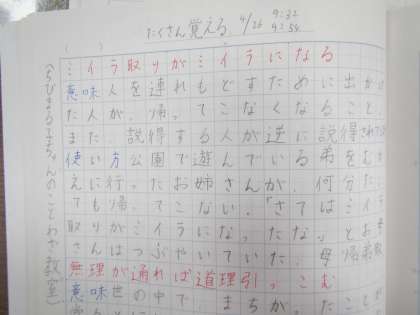 たくさん覚える 4/26 9:32
9:54
ミイラ取りがミイラになる
意味人を連れもどすために出かけ
た人が、帰ってこなくなること。
また、説得する人が逆に説得され
使い方公園で遊んでいる弟をむか
えに行ったお姉さんが、何分た
ても帰ってこない。「さてはミイラ
取りがミイラになったな。」とお母
さんはつぶやいていた。
無理が通れば道理引っこむ
意味世の中で、まちがったことが
(ちびまる子ちゃんのことわざ教室)